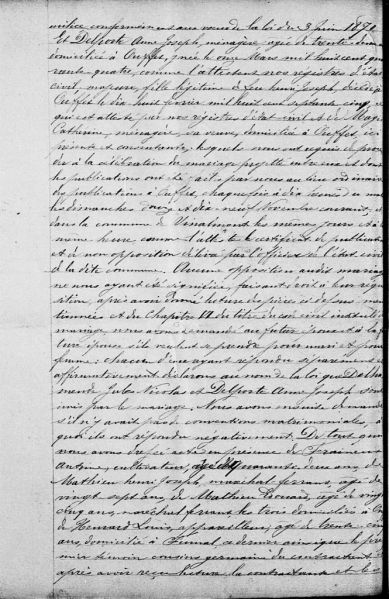 milice conformément aux vœux de la loi du 3 juin 1870
Et Delporte Anne Joseph, ménagère, agée de trente deux ans
domiciliée à Ouffet, née le onze Mars mil huit cent qua
rante quatre, comme l'attestent nos registres d'état
civil, majeure, fille légitime de feu henri Joseph, décédé à
Ouffet le dix huit février mil huit cent septante cinq, ce
qui est attesté par nos registres d'état civil et de
Catherine, ménagère, sa veuve, domiciliée à Ouffet, ici
présente et consentante; lesquels nous ont requis de procé
der à la célébration du mariage projetté entre eux et dont
les publications ont été faites par nous au lieu ordinaire
des publications à Ouffet, chaque fois à dix heures du ma
tin les dimanches douze et dix-neuf Novembre courant, et
dans la commune de les mêmes jours et à la
même heure comme l'atteste le certificat de publication
et de non opposition délivré par l'officier de l'état civil
de la dite commune. Aucune opposition audit mariage
ne nous ayant été signifiée, faisant droit à leur réqui
sition, après avoir donné lecture des pièces ci dessus men
tionnées et du Chapitre VI du titre du code civil intitulé du
mariage, nous avons demandé au futur époux et à la fu
ture épouse s'ils veulent se prendre pour mari et pour
femme; chacun d'eux ayant répondu séparément et
affirmativement déclarons au nom de la loi que
Jules Nicolas et Delporte Anne Joseph sont
unis par le mariage. Nous avons ensuite demandé
s'il n'y avait pas de conventions matrimoniales, à
quoi ils ont répondu négativement. De tout quoi
nous avons dressé acte en présence de
Antoine, cultivateur, agé de quarante deux ans, de
Mathieu henri Joseph, maréchal ferrant, agé de
vingt sept ans, de Mathieu Louis, agé de vingt
ans, maréchal ferrant les trois domiciliés à
de Louis, agé de trente
ans, domicilié à ce dernier ainsi que le pre
mier témoin cousins germains du contractant et
après avoir reçu lecture les contractants et le